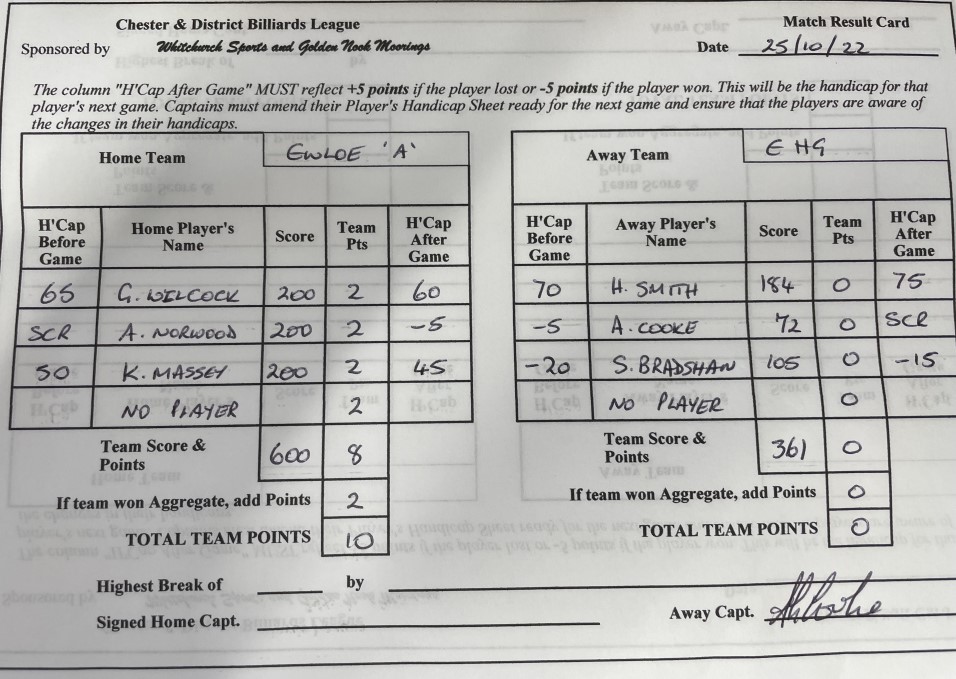 Chester & District Billiards League
Match Result Card
Sponsored by Whitchurch Sports and Golden Nook Moorings
Date 25/10/22
The column "H'Cap After Game" MUST reflect +5 points if the player lost or -5 points if the player won. This will be the handicap for that
player's next game. Captains must amend their Player's Handicap Sheet ready for the next game and ensure that the players are aware of
the changes in their handicaps.
Home Team EWLOE 'A'
H'Cap Before Game Home Player's Name Score Team Pts H'Cap After Game
65 G. WILCOCK 200 2 60
SCR A. NORWOOD 200 2 -5
50 K. MASSEY 200 2 45
NO PLAYER 2
Team Score & Points 600 8
If team won Aggregate, add Points 2
TOTAL TEAM POINTS 10
Away Team E HG
H'Cap Before Game Away Player's Name Score Team Pts H'Cap After Game
70 H. SMITH 184 0 75
-5 A. COOKE 72 0 SCR
-20 S. BRADSHAW 105 0 -15
NO PLAYER 0
Team Score & Points 361 0
If team won Aggregate, add Points 0
TOTAL TEAM POINTS 0
Highest Break of by
Signed Home Capt.
Away Capt.